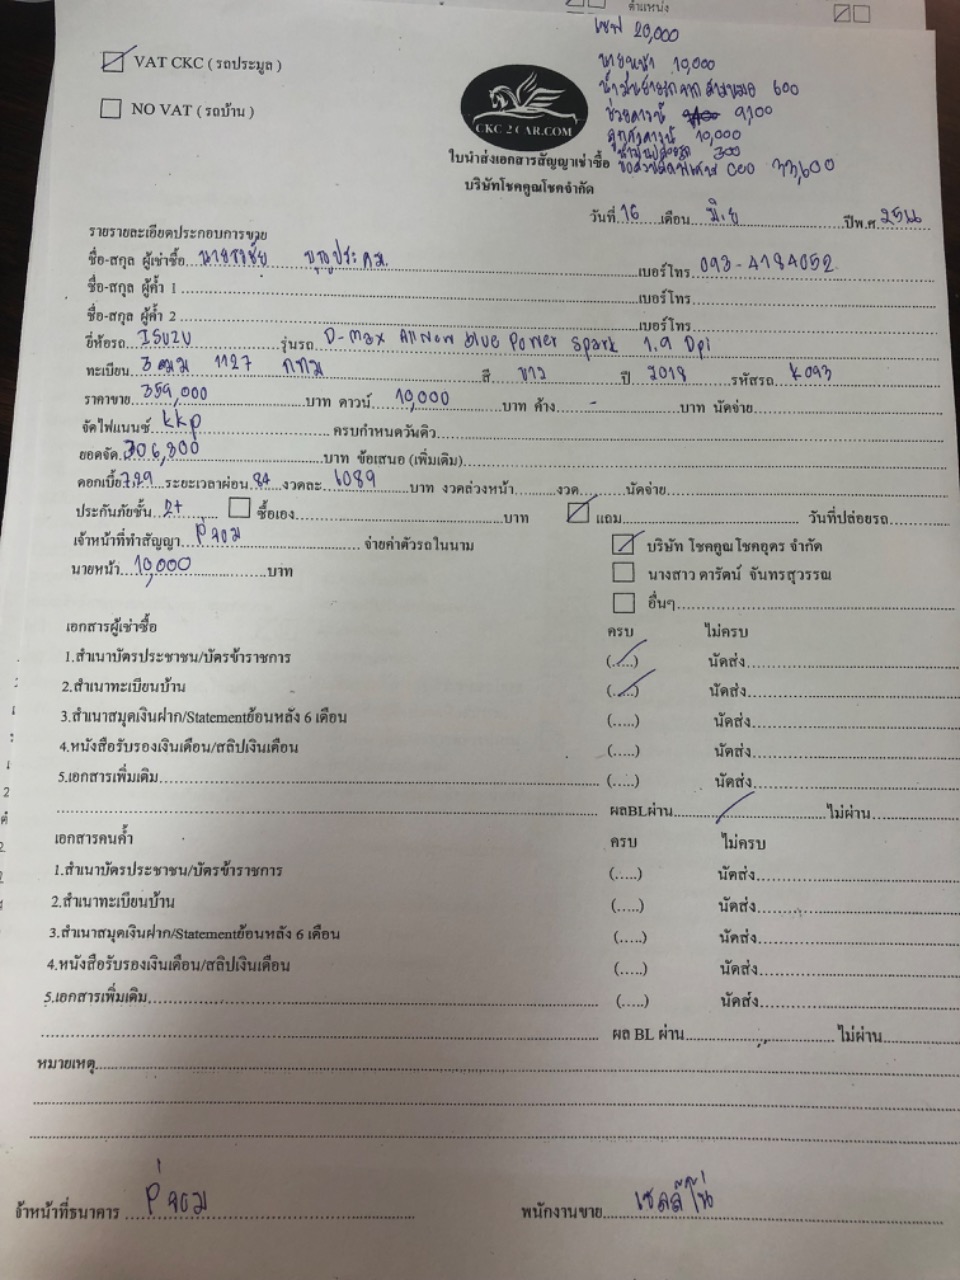 ตำแหน่ง
เซฟ 20,000
VAT CKC ( รถประมูล )
นายหน้า 10,000
600
NO VAT ( รถบ้าน )
ช่วยดาวน์ 9,100
ลูกค้าดาวน์ 10,000
CKC 2 CAR.COM
300
ใบนำส่งเอกสารสัญญาเช่าซื้อ
33,600
บริษัทโชคคูณโชคจำกัด
วันที่ 16 เดือน มิ.ย ปีพ.ศ. 2566
รายรายละเอียดประกอบการขาย
ชื่อ-สกุล ผู้เช่าซื้อ นายธวัชชัย เบอร์โทร 093-4184052
ชื่อ-สกุล ผู้ค้ำ 1 เบอร์โทร
ชื่อ-สกุล ผู้ค้ำ 2 เบอร์โทร
ยี่ห้อรถ ISUZU รุ่นรถ D-Max All New blue Power Spark 1.9 Dpi
ทะเบียน 3ฒฒ 1127 กทม สี ขาว ปี 2018 รหัสรถ K093
ราคาขาย 359,000 บาท ดาวน์ 10,000 บาท ค้าง - บาท นัดจ่าย
จัดไฟแนนซ์ kkp ครบกำหนดวันคิว
ยอดจัด 306,800 บาท ข้อเสนอ (เพิ่มเติม)
ดอกเบี้ย 7.29 ระยะเวลาผ่อน 84 งวดละ 6089 บาท งวดล่วงหน้า งวด นัดจ่าย
ประกันภัยชั้น 2+ ซื้อเอง บาท แถม วันที่ปล่อยรถ
เจ้าหน้าที่ทำสัญญา P'จอม จ่ายค่าตัวรถในนาม
บริษัท โชคคูณโชคอุดร จำกัด
นายหน้า 10,000 บาท
นางสาว ดารัตน์ จันทรสุวรรณ
อื่นๆ
เอกสารผู้เช่าซื้อ ครบ ไม่ครบ
1.สำเนาบัตรประชาชน/บัตรข้าราชการ (.....) นัดส่ง
2.สำเนาทะเบียนบ้าน (.....) นัดส่ง
3.สำเนาสมุดเงินฝาก/Statementย้อนหลัง 6 เดือน (.....) นัดส่ง
4.หนังสือรับรองเงินเดือน/สลิปเงินเดือน (.....) นัดส่ง
5.เอกสารเพิ่มเติม (.....) นัดส่ง
ผลBLผ่าน ไม่ผ่าน
เอกสารคนค้ำ ครบ ไม่ครบ
1.สำเนาบัตรประชาชน/บัตรข้าราชการ (.....) นัดส่ง
2.สำเนาทะเบียนบ้าน (.....) นัดส่ง
3.สำเนาสมุดเงินฝาก/Statementย้อนหลัง 6 เดือน (.....) นัดส่ง
4.หนังสือรับรองเงินเดือน/สลิปเงินเดือน (.....) นัดส่ง
5.เอกสารเพิ่มเติม (.....) นัดส่ง
ผล BL ผ่าน ไม่ผ่าน
หมายเหตุ
จ้าหน้าที่ธนาคาร P'จอม พนักงานขาย เซลล์โน่